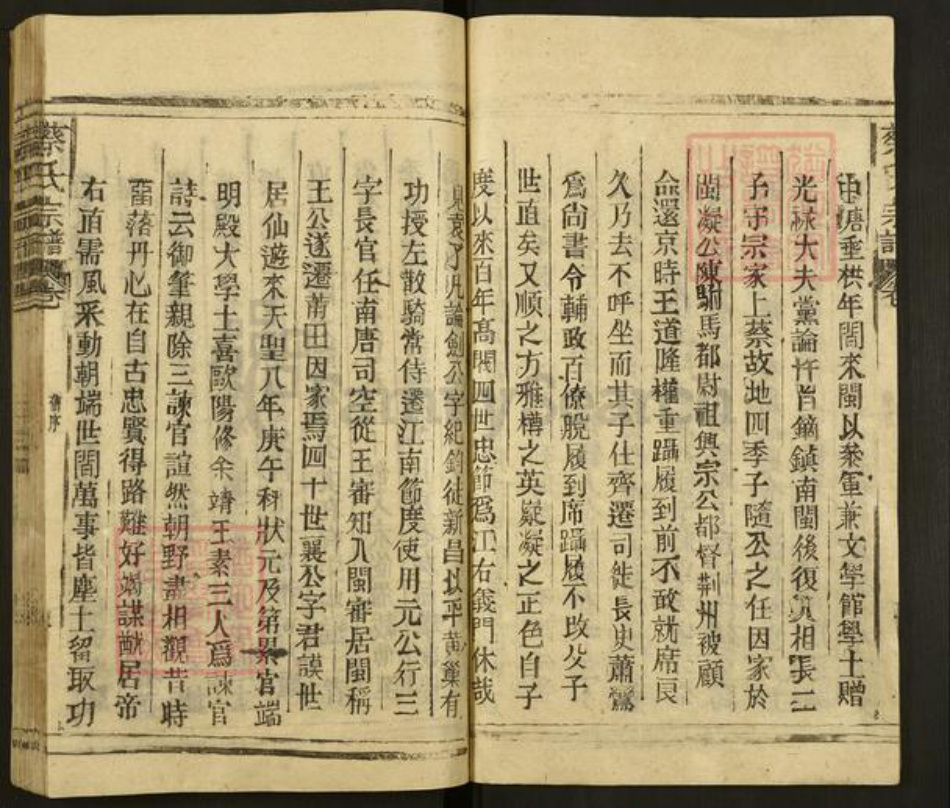 中唐垂拱年間來閩以叅軍兼文學館學士贈
光祿大夫黨論忤旨鏑鎮南閩後復負相長二
子守宗家上蔡故地四季子隨公之任因家於
閩凝公陳駙馬都尉祖興宗公都督荆州被顧
命還京時王道隆權重躡履到前不敢就席良
久乃去不呼坐而其子仕齊遷司徒長史蕭鸞
爲尚書令輔政百僚脫履到席躡履不改父子
世直矣又順之方雅樽之英疑凝之正色自子
度以來百年高閥四世忠節爲江右義門休哉
見袁了凡論劍公字紀鈞徒新昌以平黄巢有
功授左散騎常侍遷江南節度使用元公行三
字長官任南唐司空從王審知入閩審居閩稱
王公遂遷莆田因家焉四十世襄公字君謨世
居仙遊宋天聖八年庚午科狀元及第累官端
明殿大學士喜歐陽修余靖王素三人爲諫官
詩云御筆親除三諫官諠然朝野盡相觀昔時
流落丹心在自古忠賢得路難好竭謀猷居帝
右直需風采動朝端世間萬事皆塵土留取功
蔡氏宗譜 卷
舊序